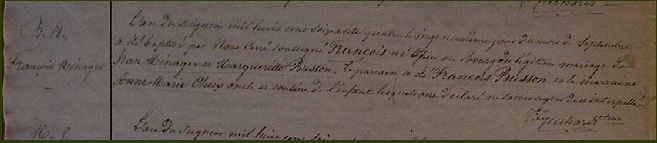 B. N.
François Ménager
L'an du Seigneur mil huit cent soixante quatre le vingt neuvième jour du mois de Septembre
a été Baptisé par Nous curé soussigné François né hier au Bourg du légitime mariage de
Jean Ménager et Marguerite Busson. Le parrain a été François Busson et la marraine
Anne Marie oncle et cousine de l'enfant lesquels ont déclaré ne savoir signer de ce interpellés
L'an du Seigneur mil huit cent soi